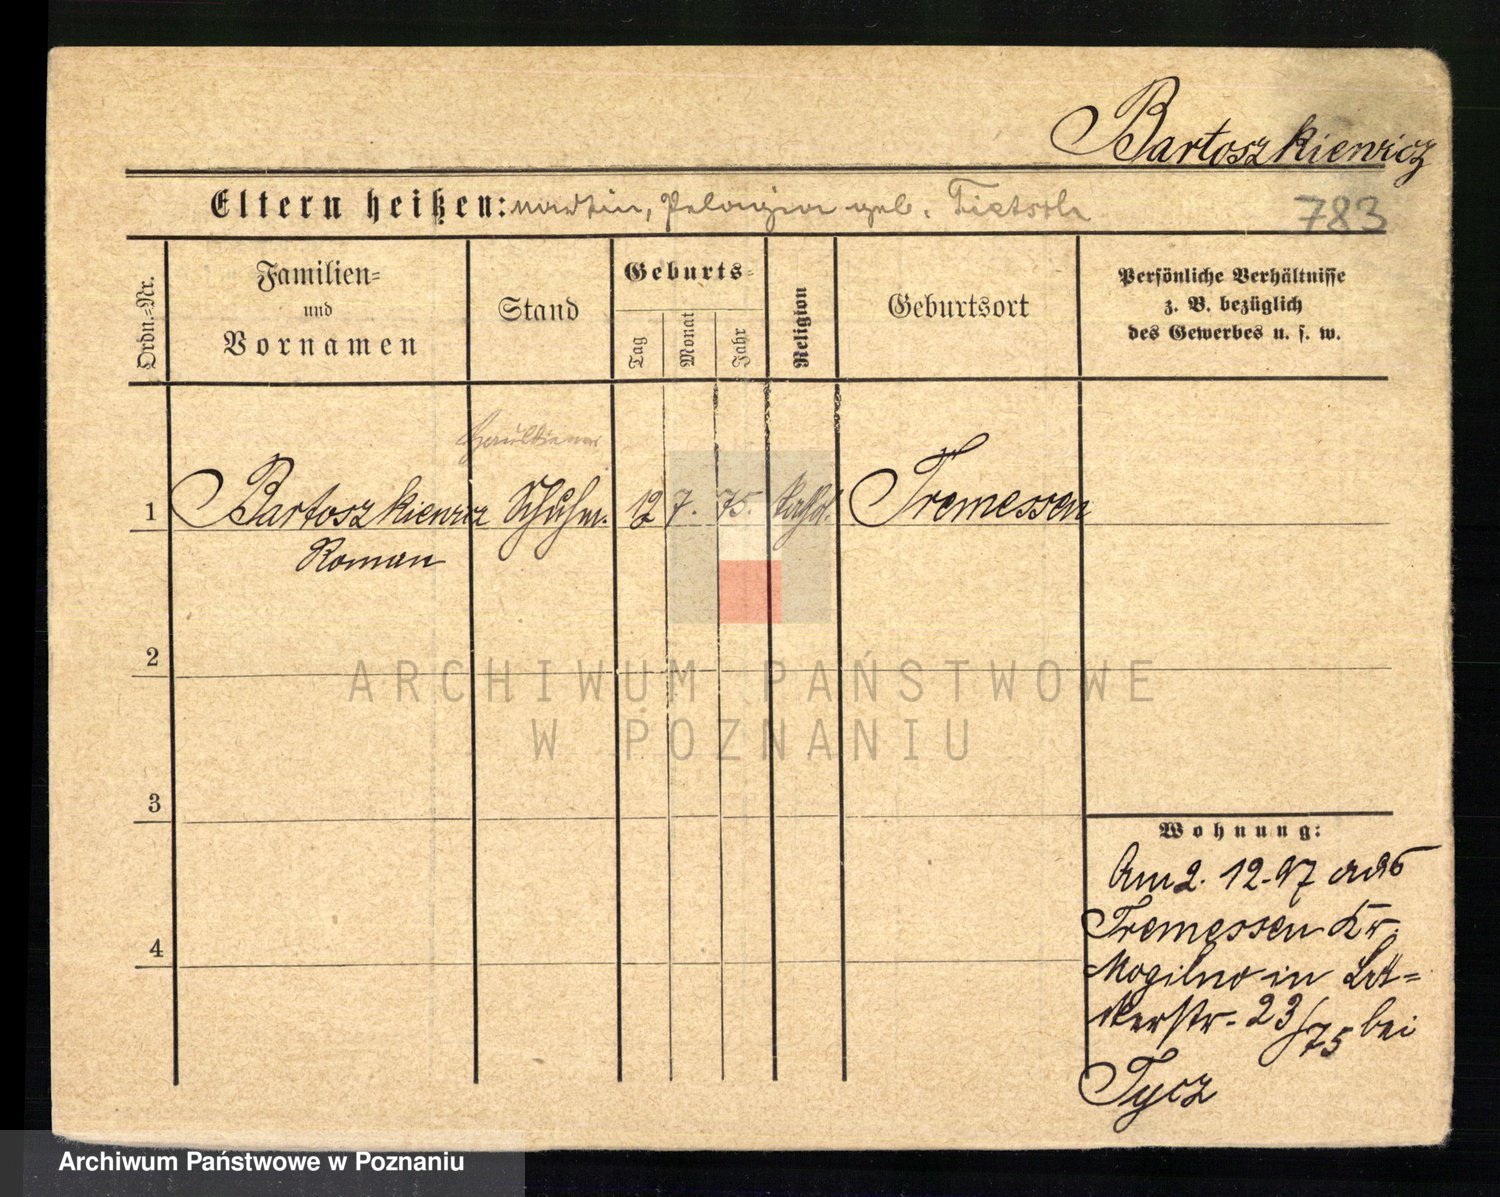 Bartoszkiewicz
Eltern heißen: Martin, Pelagia geb. Tietsch
783
Ordn.=Nr.
Familien=
und
Vornamen
Stand
Geburts=
Tag
Monat
Jahr
Religion
Geburtsort
Persönliche Verhältnisse
z. B. bezüglich
des Gewerbes u. s. w.
1 Bartoszkiewicz Schuhm. 12 7. 75. Kathol. Tremessen
Roman
2
3
4
Wohnung:
Am 2. 12. 97 aus
Tremessen Kr.
Mogilno in
23/75 bei
Tycz
ARCHIWUM PAŃSTWOWE
W POZNANIU
Archiwum Państwowe w Poznaniu